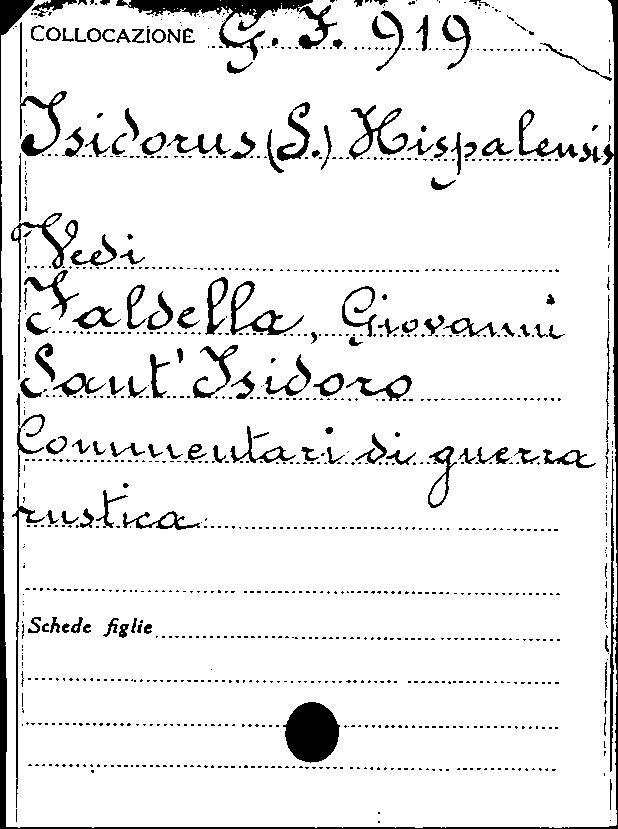 COLLOCAZIONE G. F. 919
Isidorus (S.) Hispalensis
Vedi
Faldella, Giovanni
Sant'Isidoro
Commentari di guerra
rustica
Schede figlie